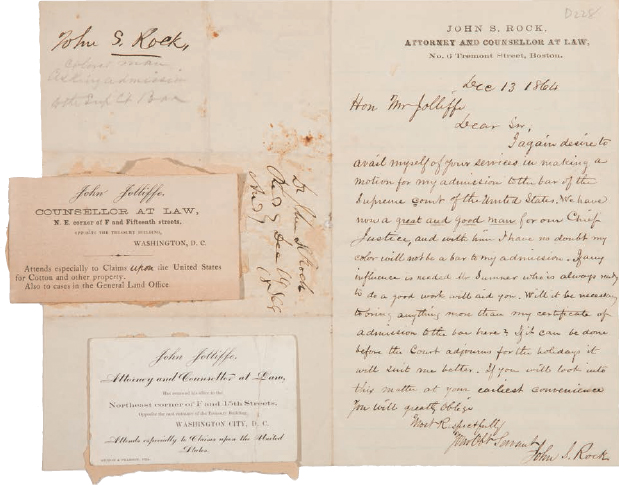 John S. Rock,
Colored man
asking admission
to the Sup Ct Bar
John Jolliffe,
COUNSELLOR AT LAW,
N. E. corner of F and Fifteenth streets,
OPPOSITE THE TREASURY BUILDING,
WASHINGTON, D. C.
Attends especially to Claims upon the United States
for Cotton and other property.
Also to cases in the General Land Office
John Jolliffe,
Attorney and Counsellor at Law,
Has removed his office to the
Northeast corner of F and 15th Streets,
Opposite the east entrance of the Treasury Building,
WASHINGTON CITY, D. C.
Attends especially to Claims upon the United
States.
Dr John S Rock
Dec 1864
D228
JOHN S. ROCK,
ATTORNEY AND COUNSELLOR AT LAW,
No. 6 Tremont Street, Boston.
Dec 13 1864
Hon Mr Jolliffe
Dear Sir,
I again desire to
avail myself of your services in making a
motion for my admission to the bar of the
Supreme Court of the United States. We have
now a great and good man for our Chief
Justice, and with him I have no doubt my
color will not be a bar to my admission. If any
influence is needed Mr Sumner who is always ready
to do a good work will aid you. Will it be necessary
to bring anything more than my certificate of
admission to the bar here? If it can be done
before the Court adjourns for the holidays it
will suit me better. If you will look into
this matter at your earliest convenience
You will greatly oblige
Most Respectfully
Your Obt Servant
John S. Rock